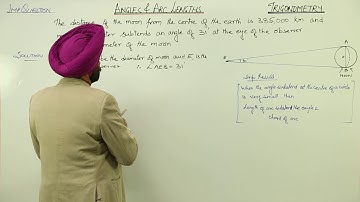 Imp Question
ANGLES & ARC LENGTHS
TRIGONOMETRY
The distance of the moon from the centre of the earth is 385,000 km and
subtends an angle of 31' at the eye of the observer
diameter of the moon
Solution
be the diameter of moon and E, is the
observer ∴ ∠AEB = 31'
E
A
B
Imp Result
When the angle subtend at the centre of a circle
is very small then
Length of arc subtend the angle =
chord of arc